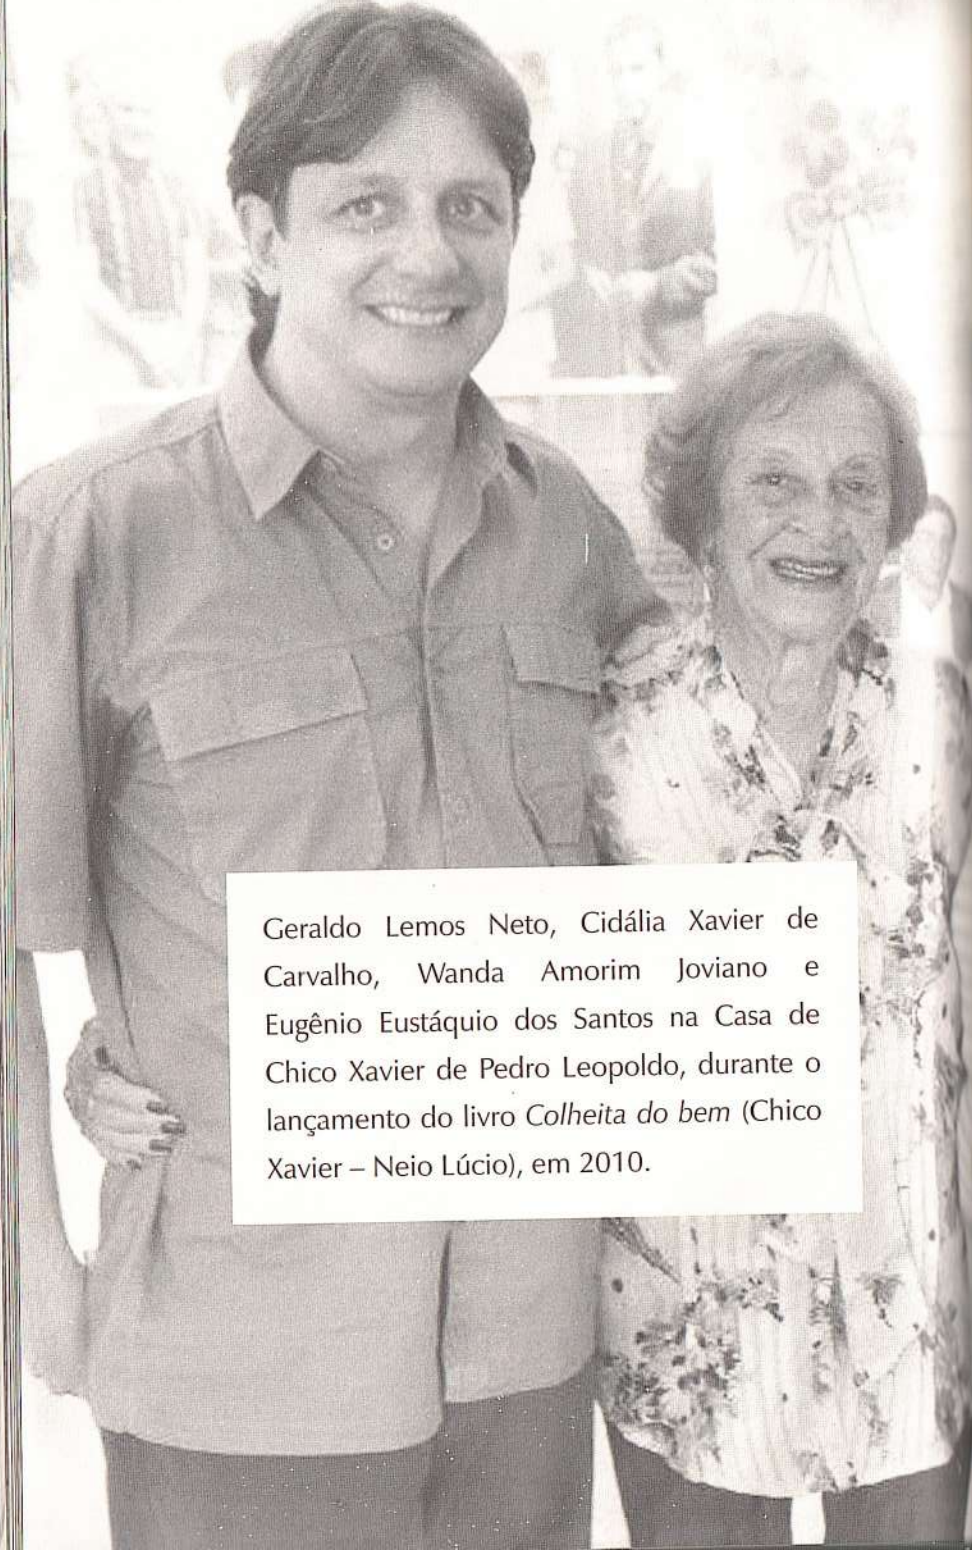 Geraldo Lemos Neto, Cidália Xavier de
Carvalho, Wanda Amorim Joviano e
Eugênio Eustáquio dos Santos na Casa de
Chico Xavier de Pedro Leopoldo, durante o
lançamento do livro Colheita do bem (Chico
Xavier – Neio Lúcio), em 2010.